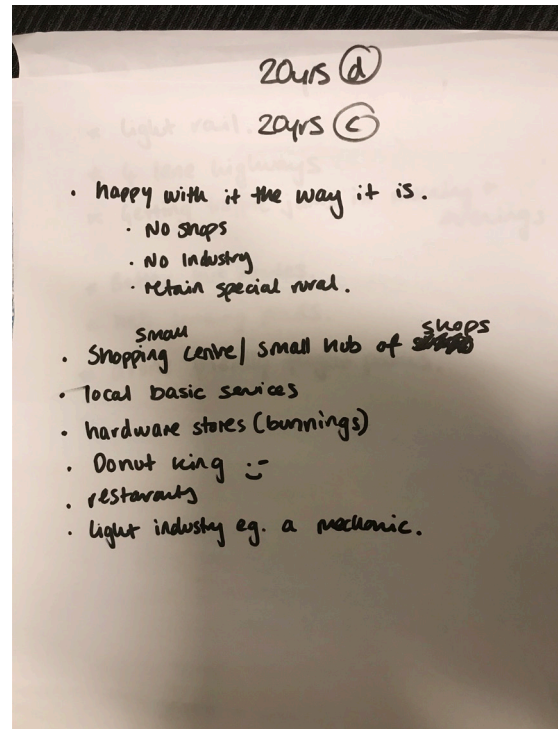 20yrs (d)
20yrs (c)
• happy with it the way it is.
• No shops
• No Industry
• retain special rural.
small
• Shopping centre/ small hub of shops
• local basic services
• hardware stores (bunnings)
• Donut king :-
• restaraunts
• light industry eg. a mechanic.
* light rail.
lane highways
evenings